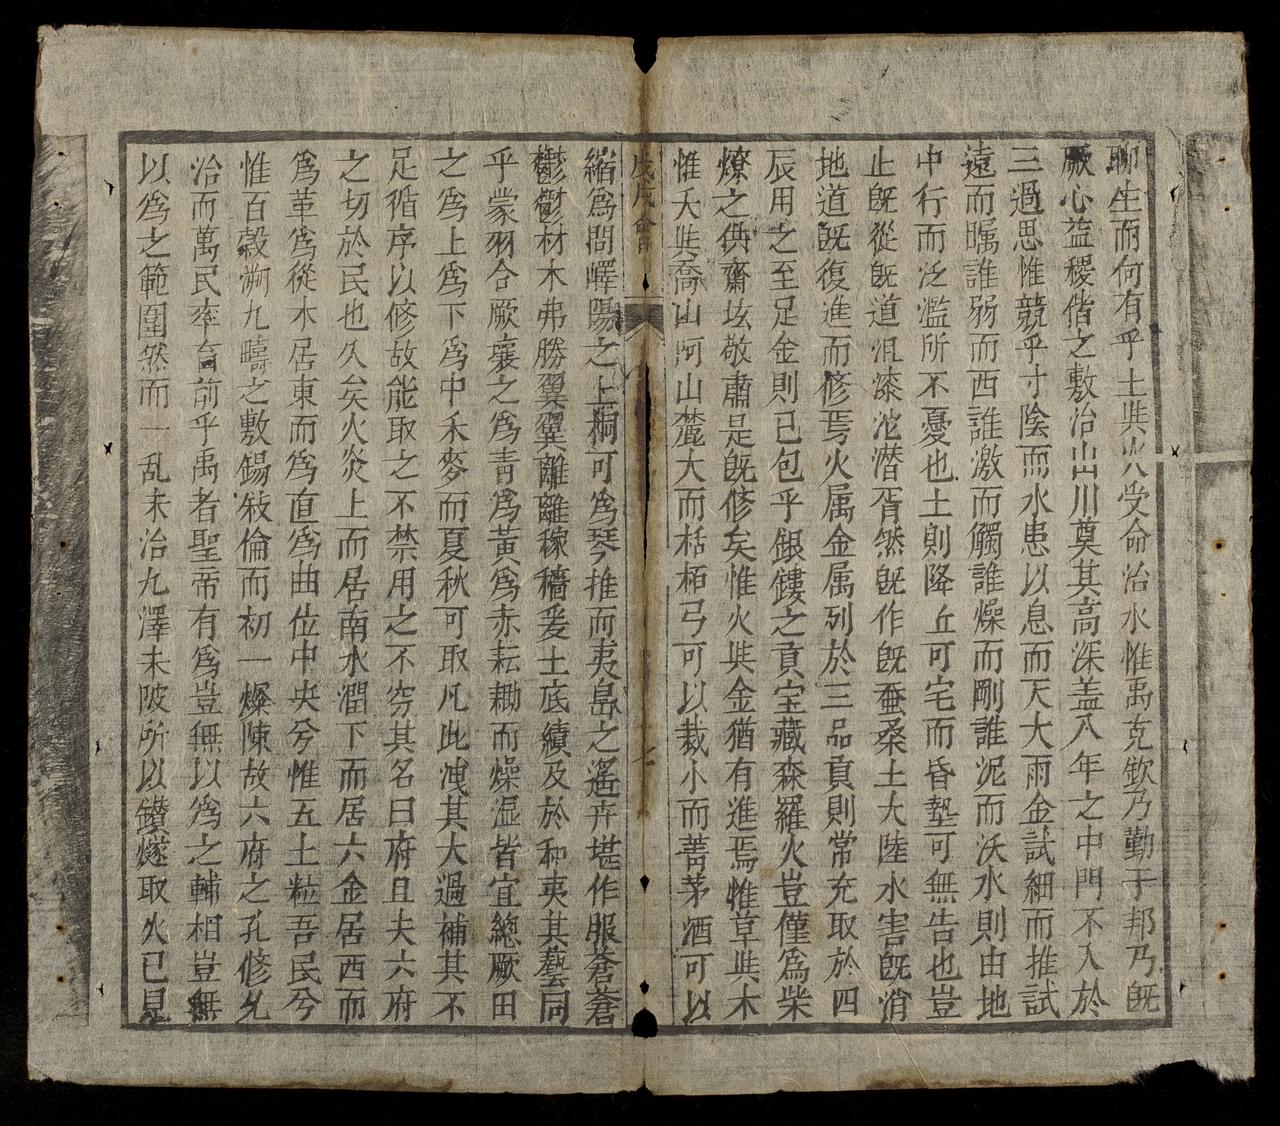 聊生而何有乎土与火受命治水惟禹克欽乃勤于邦乃既
厥心益稷偕之敷治山川奠其高深盖八年之中門不入於
三過思惟競乎寸陰而水患以息而天大雨金試細而推試
遠而矚誰弱而西誰激而觸誰燥而剛誰泥而沃水則由地
中行而泛濫所不憂也土則降丘可宅而昏墊可無告也豈
止既從既道沮漆沱潜胥然既作既蚕桑土大陸水害既消
地道既復進而修焉火属金属列於三品貢則常充取於四
辰用之至足金則已包乎銀鏤之貢宝藏森羅火豈僅爲柴
燎之供齋坛敬肅是既修矣惟火与金猶有進焉惟草与木
惟夭与喬山阿山麓大而栝栢弓可以裁小而菁茅酒可以
戊戌會
七
縮爲問嶧陽之上桐可爲琴推而夷島之遥卉堪作服蒼蒼
鬱鬱材木弗勝翼翼離離稼穡爰土底績及於和夷其藝同
乎蒙羽合厥壤之爲青爲黃爲赤耘耡而燥湿皆宜總厥田
之爲上爲下爲中禾麥而夏秋可取凡此洩其大過補其不
足循序以修故能取之不禁用之不穷其名曰府且夫六府
之切於民也久矣火炎上而居南水潤下而居六金居西而
爲革爲從木居東而爲直爲曲位中央兮惟五土粒吾民兮
惟百穀溯九疇之敷錫敍倫而初一燦陳故六府之孔修允
治而萬民率育前乎禹者聖帝有爲豈無以爲之輔相豈無
以爲之範圍然而一乱未治九澤未陂所以鑚燧取火已是